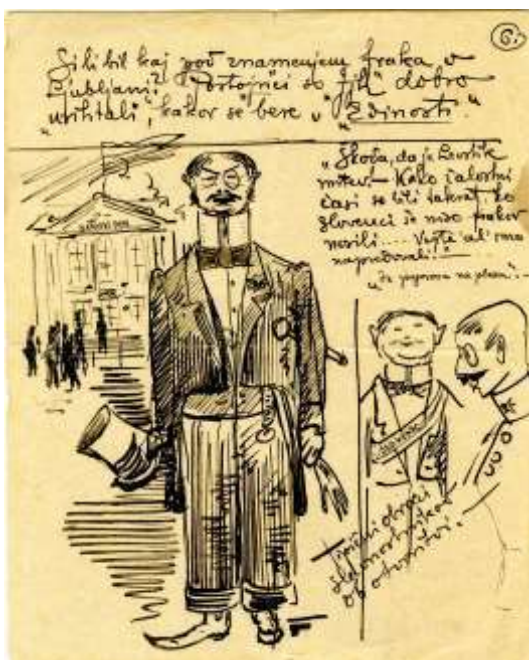 6.
Si li bil kaj pod znamenjem fraka v
Ljubljani? Postojnčci so jih dobro
"uihtali", kakor se bere v "Edinosti."
"Škoda, da je Levstik
mrtev! – Kako žalostni
časi so bili takrat, ko
Slovenci še niso frakov
nosili.... Vejte al' smo
napredovali!" –
NARODNI DOM
Tipični obrazi
slavnostnikov
ob otvoritvi. –